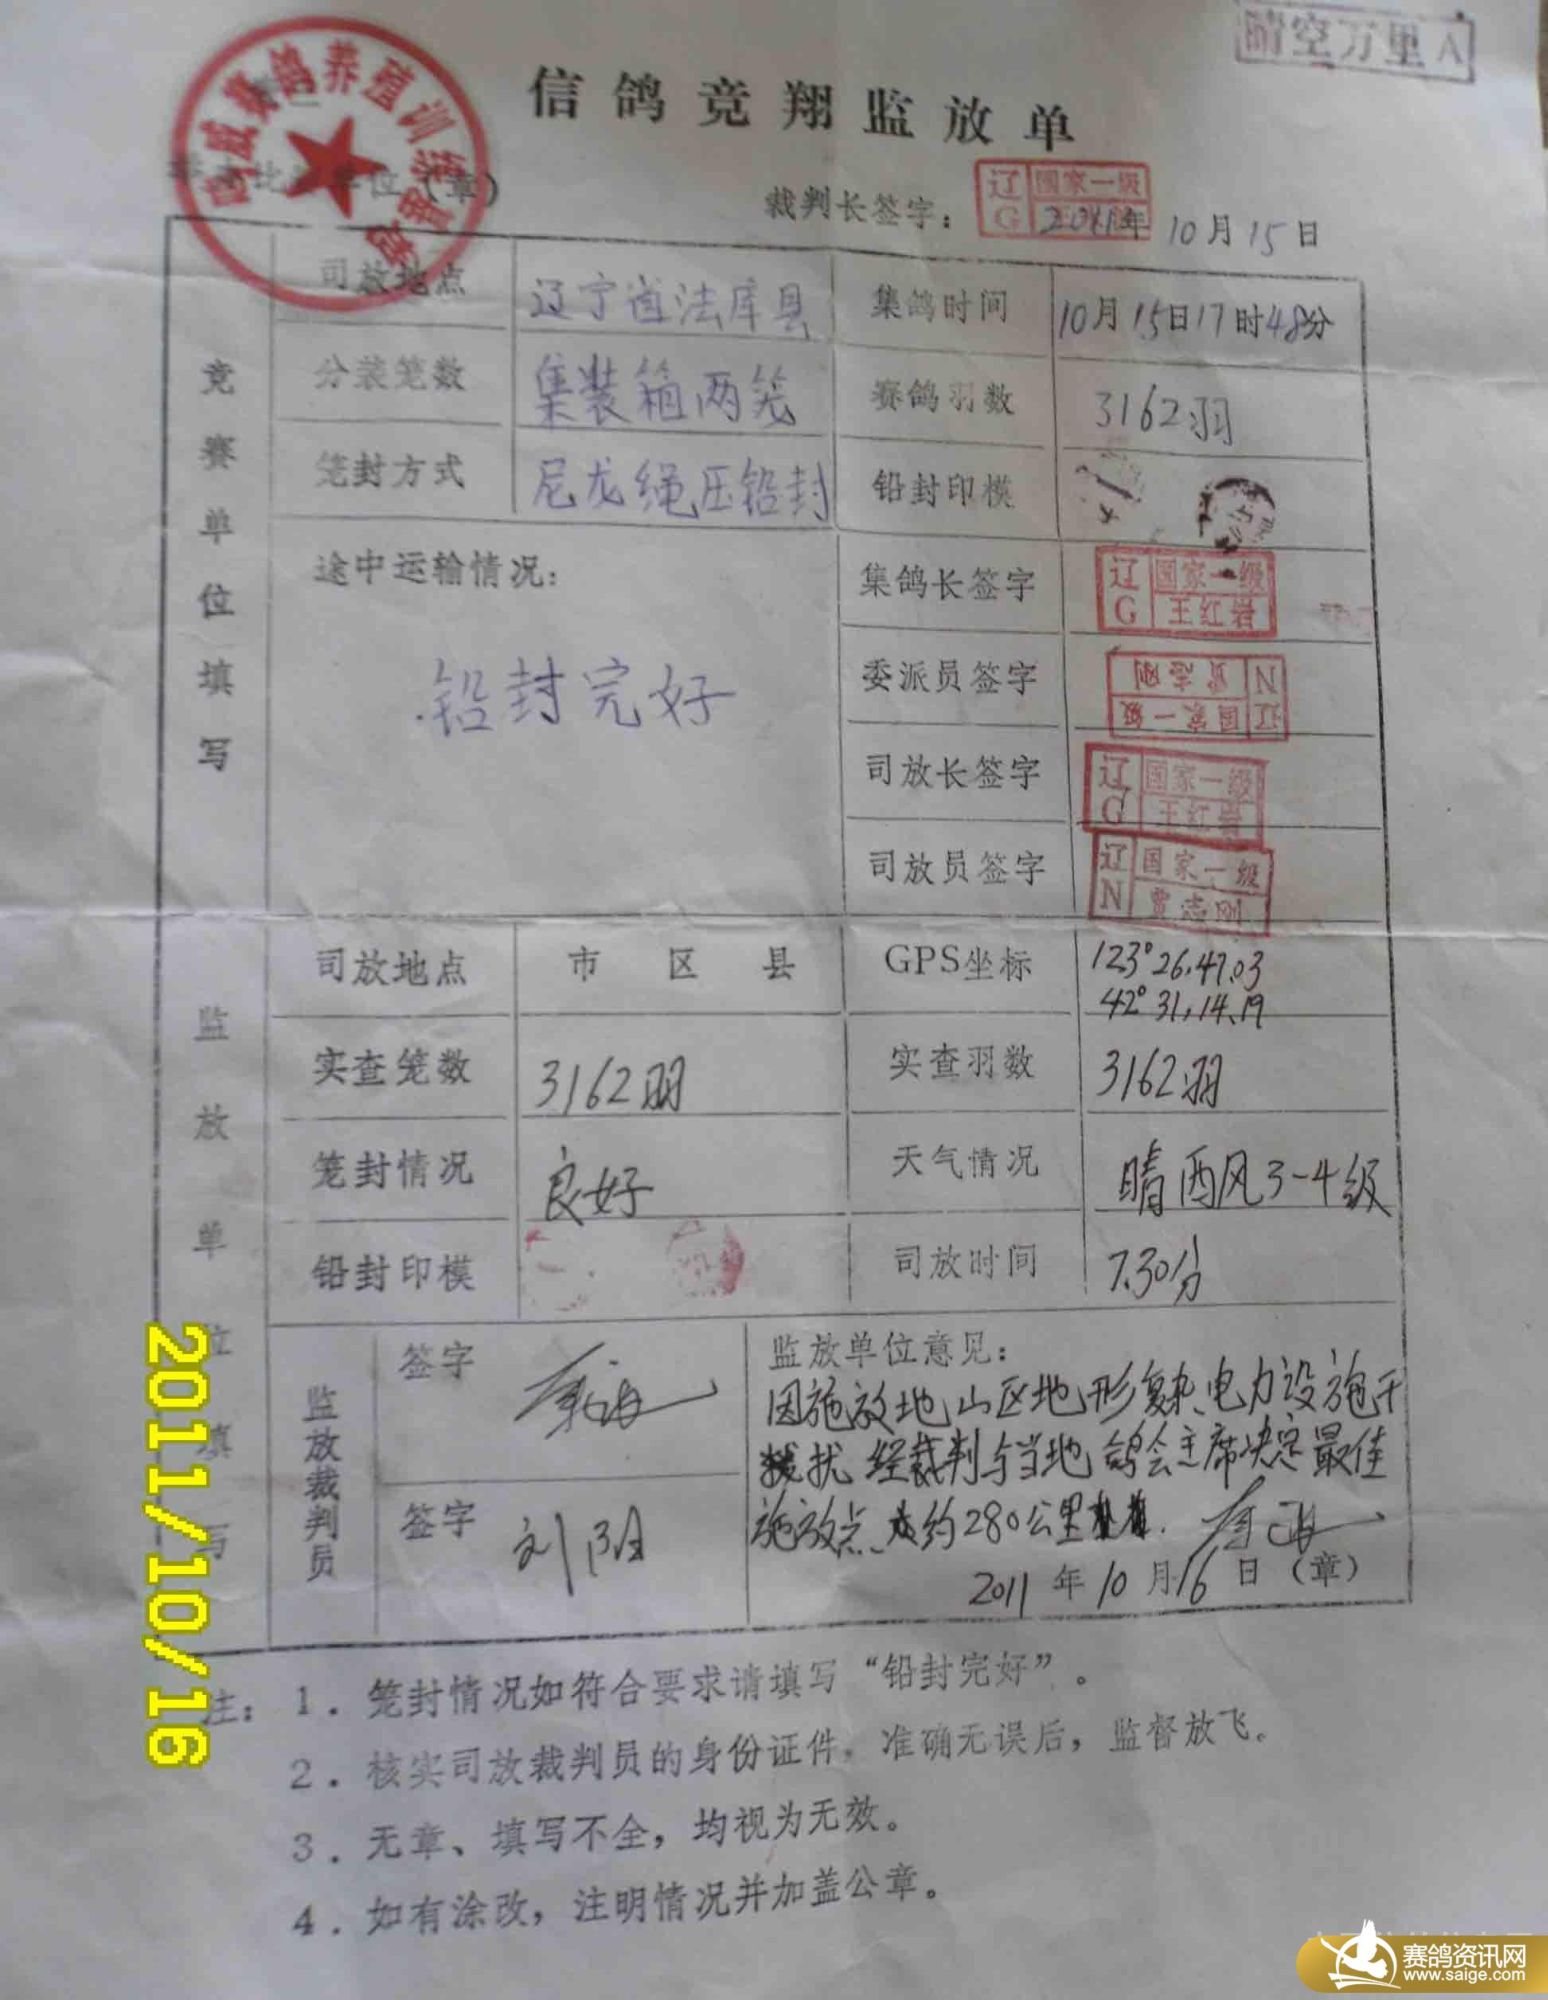 晴空万里A
信鸽竞翔监放单
赛鸽养殖训练
单位（章）
裁判长签字：
辽G 国家一级
2011年10月15日
竞赛单位填写
司放地点 辽宁省法库县 集鸽时间 10月15日17时48分
分装笼数 集装箱两笼 赛鸽羽数 3162羽
笼封方式 尼龙绳压铅封 铅封印模
途中运输情况：
铅封完好
集鸽长签字 辽G 国家一级 王红岩
委派员签字 辽N 国家一级 贾志刚
司放长签字 辽G 国家一级 王红岩
司放员签字 辽N 国家一级 贾志刚
监放单位填写
司放地点 市 区 县 GPS坐标 123°26.47.03
42°31.14.19
实查笼数 3162羽 实查羽数 3162羽
笼封情况 良好 天气情况 晴 西风3-4级
铅封印模 司放时间 7.30分
监放裁判员
签字
签字 刘阳
监放单位意见：
因施放地山区地形复杂、电力设施干
扰 经裁判与当地鸽会主席决定最佳
施放点、大约280公里
2011年10月16日（章）
注：1．笼封情况如符合要求请填写“铅封完好”。
2．核实司放裁判员的身份证件，准确无误后，监督放飞。
3．无章、填写不全，均视为无效。
4．如有涂改，注明情况并加盖公章。
2011/10/16
赛鸽资讯网
www.saige.com